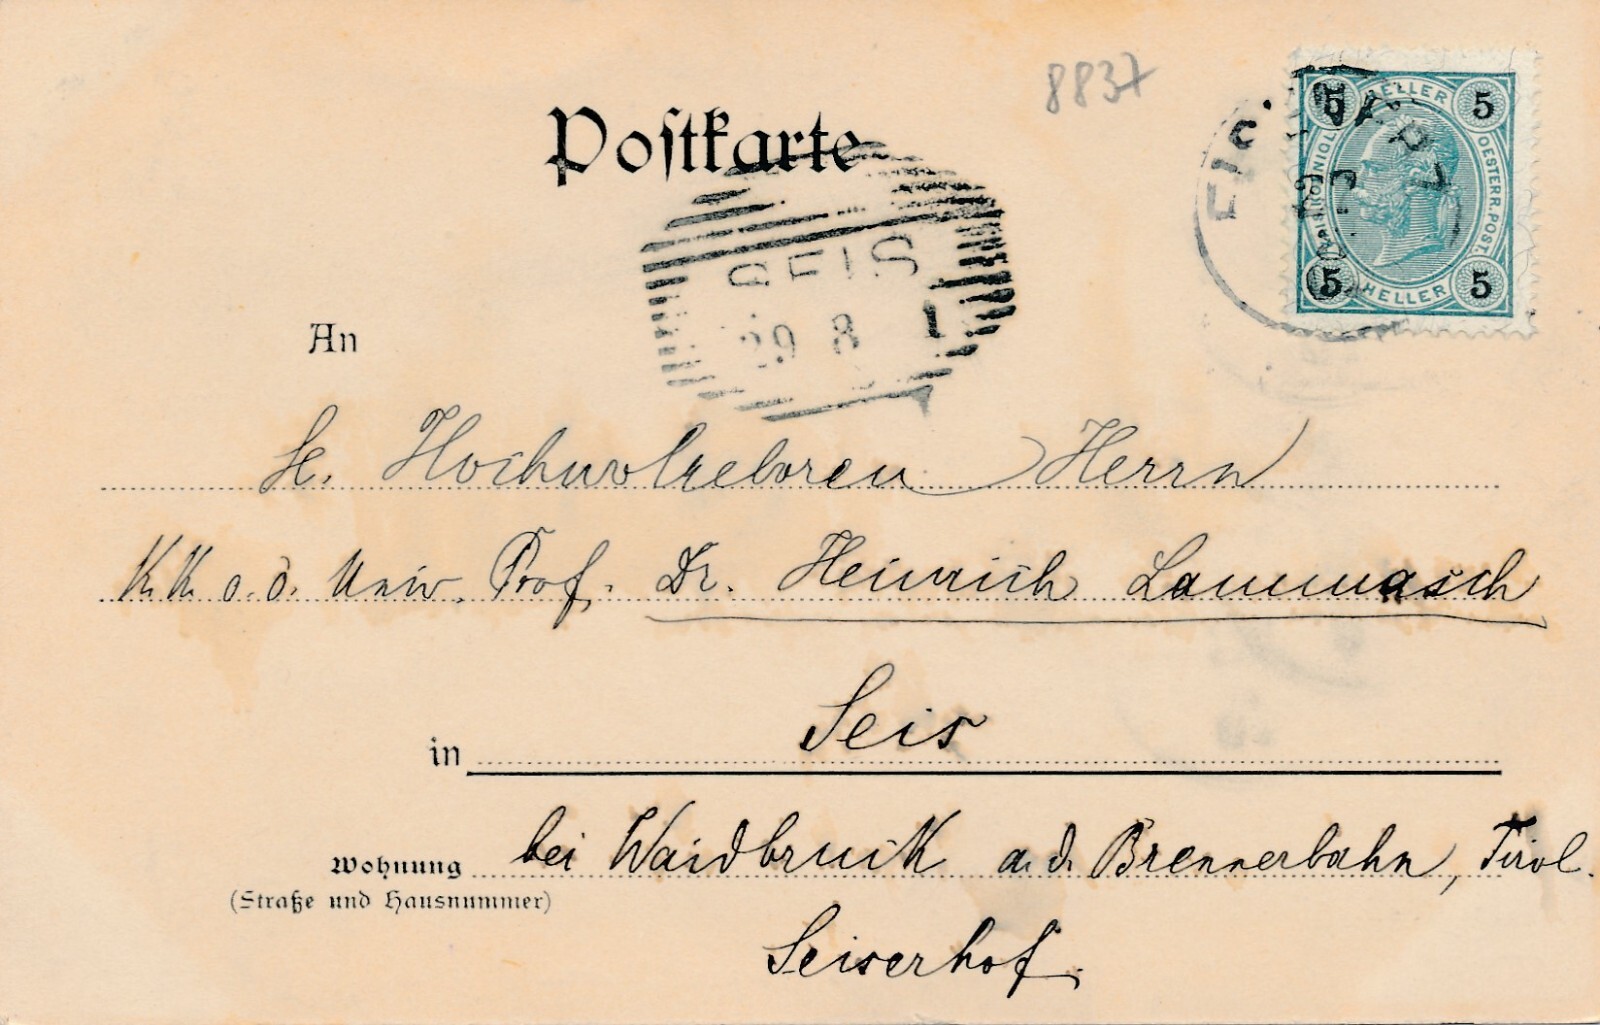 8837
Postkarte
5 HELLER 5
KAIS. KÖNIGL. OESTERR. POST.
5 HELLER 5
SEIS
29 8 1
An
Sr. Hochwolgeboren Herrn
K. K. o. ö. Univ. Prof. Dr. Heinrich Lammasch
in Seis
Wohnung bei Waidbruck a. d. Brennerbahn, Tirol.
(Straße und Hausnummer)
Seiserhof.